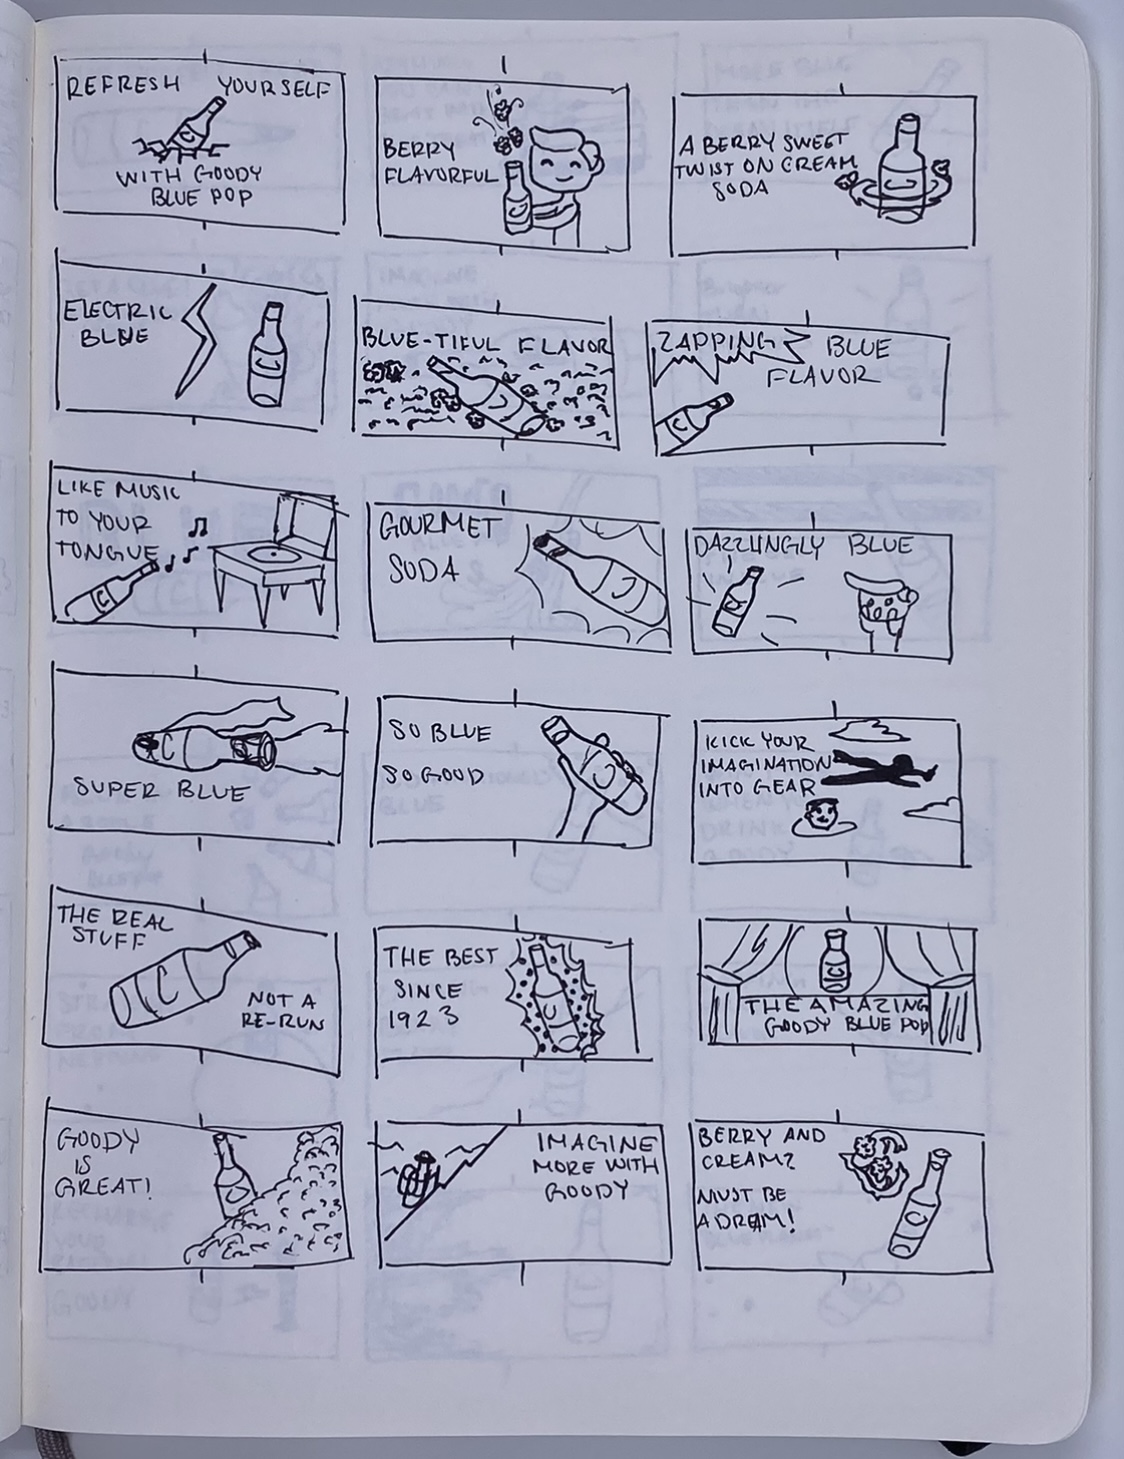 REFRESH YOURSELF
WITH GOODY
BLUE POP
BERRY
FLAVORFUL
A BERRY SWEET
TWIST ON CREAM
SODA
ELECTRIC
BLUE
BLUE-TIFUL FLAVOR
ZAPPING BLUE
FLAVOR
LIKE MUSIC
TO YOUR
TONGUE
GOURMET
SODA
DAZZLINGLY BLUE
SUPER BLUE
SO BLUE
SO GOOD
KICK YOUR
IMAGINATION
INTO GEAR
THE REAL
STUFF
NOT A
RE-RUN
THE BEST
SINCE
1923
THE AMAZING
GOODY BLUE POP
GOODY
IS
GREAT!
IMAGINE
MORE WITH
GOODY
BERRY AND
CREAM?
MUST BE
A DREAM!